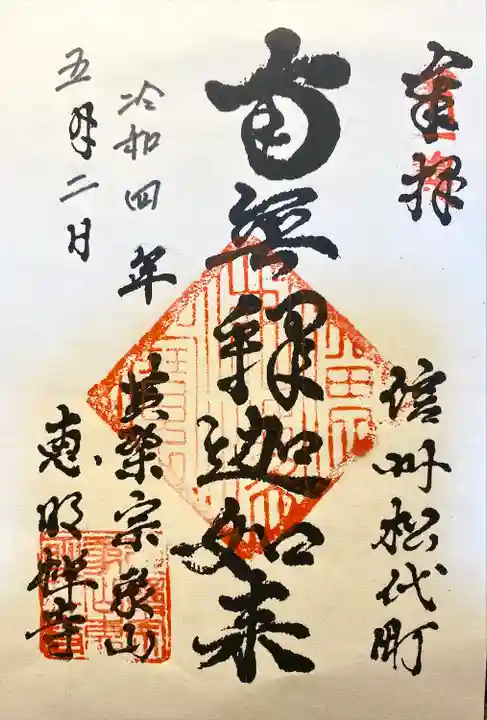 奉拝
信州松代町
南無釈迦如来
黄檗宗象山
恵明禅寺
令和四年
五月二日